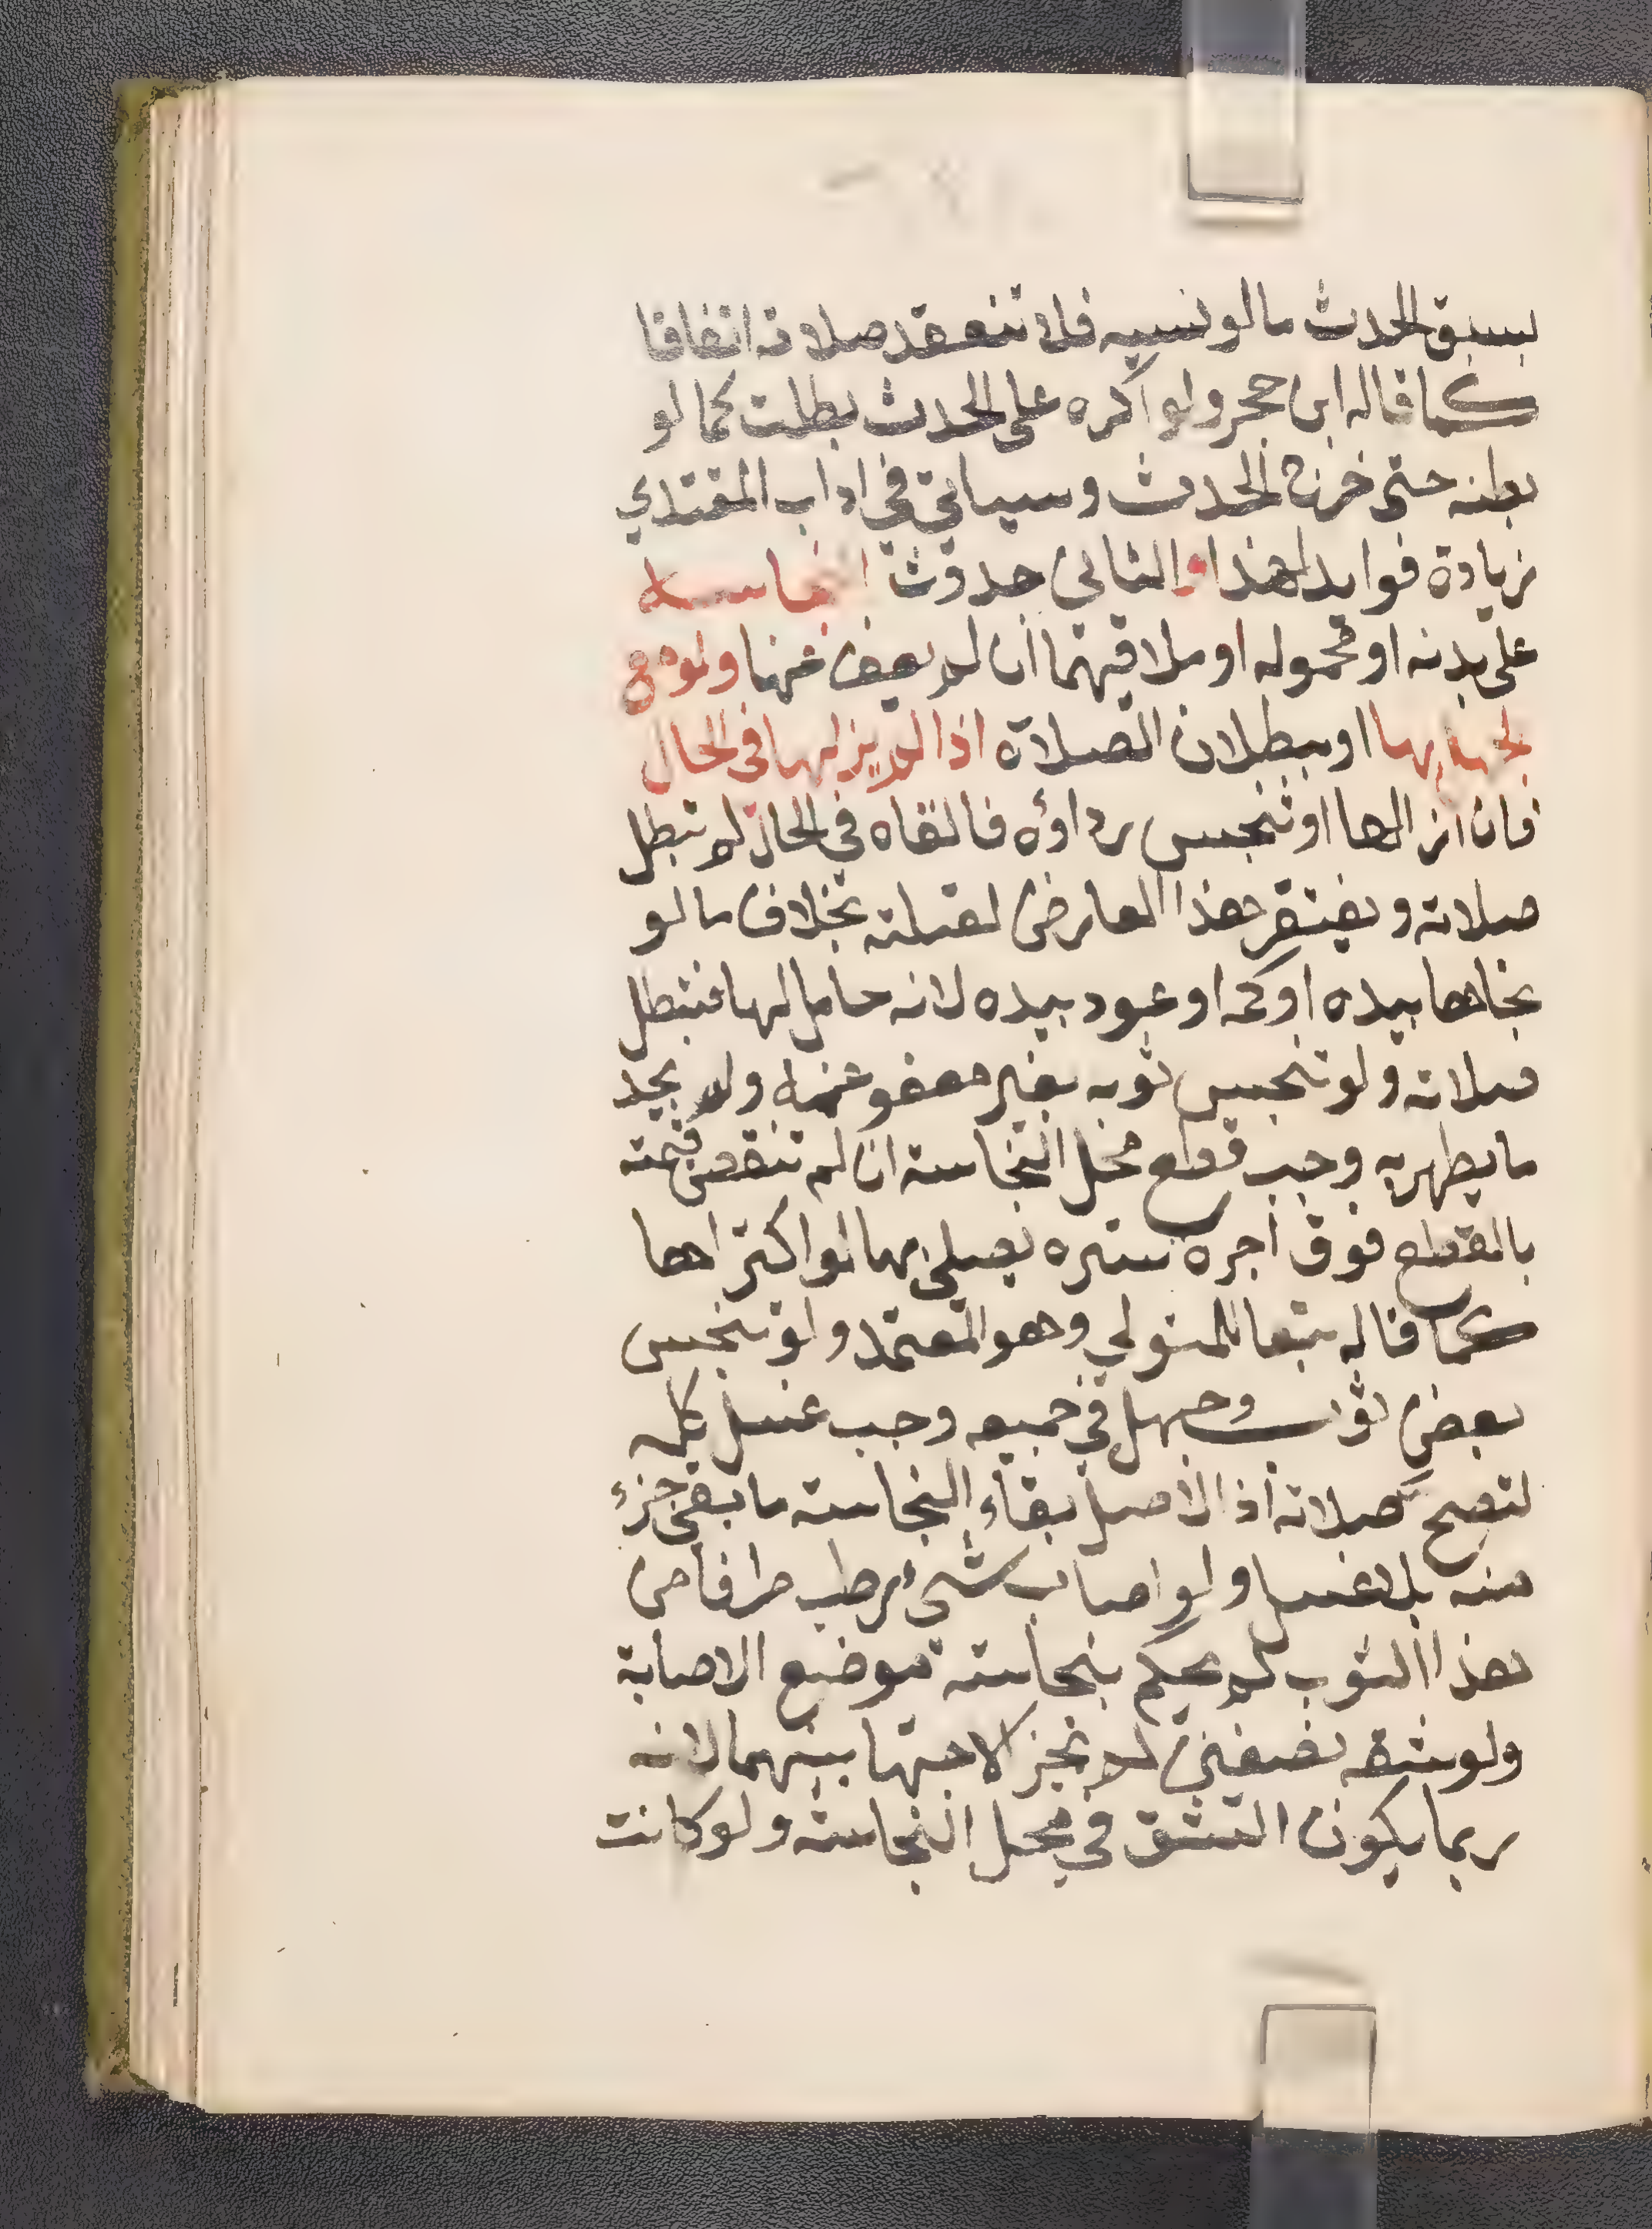 بسبق الحدث مالو نسيه فلا تنعقد صلاته اتفاقا
كما قاله ابن حجر ولو اكره على الحدث بطلت كما لو
بطنه حتى خرج الحدث وسياتي في اداب المقتدي
زيادة فوايد لهذا والثاني حدوث النجاسة
على بدنه او محموله او ملاقيهما ان لم يعف عنها ولو مع
لجهله بها او ببطلان الصلاة اذا لم يزلها في الحال
فان ازالها او تنجس رداؤه فالقاه في الحال لم تبطل
صلاته ويغتفر هذا العارض لقلته بخلاف ما لو
نحاها بيده او كمه او عود بيده لانه حامل لها فتبطل
صلاته ولو تنجس ثوبه بغير معفو عنه ولم يجد
ما يطهر به وجب قطع محل النجاسة ان لم تنقص قيمته
بالقطع فوق اجرة ستره يصلي بها لو اكتراها
كما قاله تبعا للمتولي وهو المعتمد ولو تنجس
بعض ثوب وجهل في جميعه وجب غسل كله
لتصح صلاته اذ الاصل بقاء النجاسة ما بقي جزء
منه بلا غسل ولو اصاب شيء رطب طرفا من
هذا الثوب لم يحكم بنجاسة موضع الاصابة
ولو شقه نصفين لم يجز الاجتهاد بينهما لانه
ربما يكون الشق في محل النجاسة ولو كانت